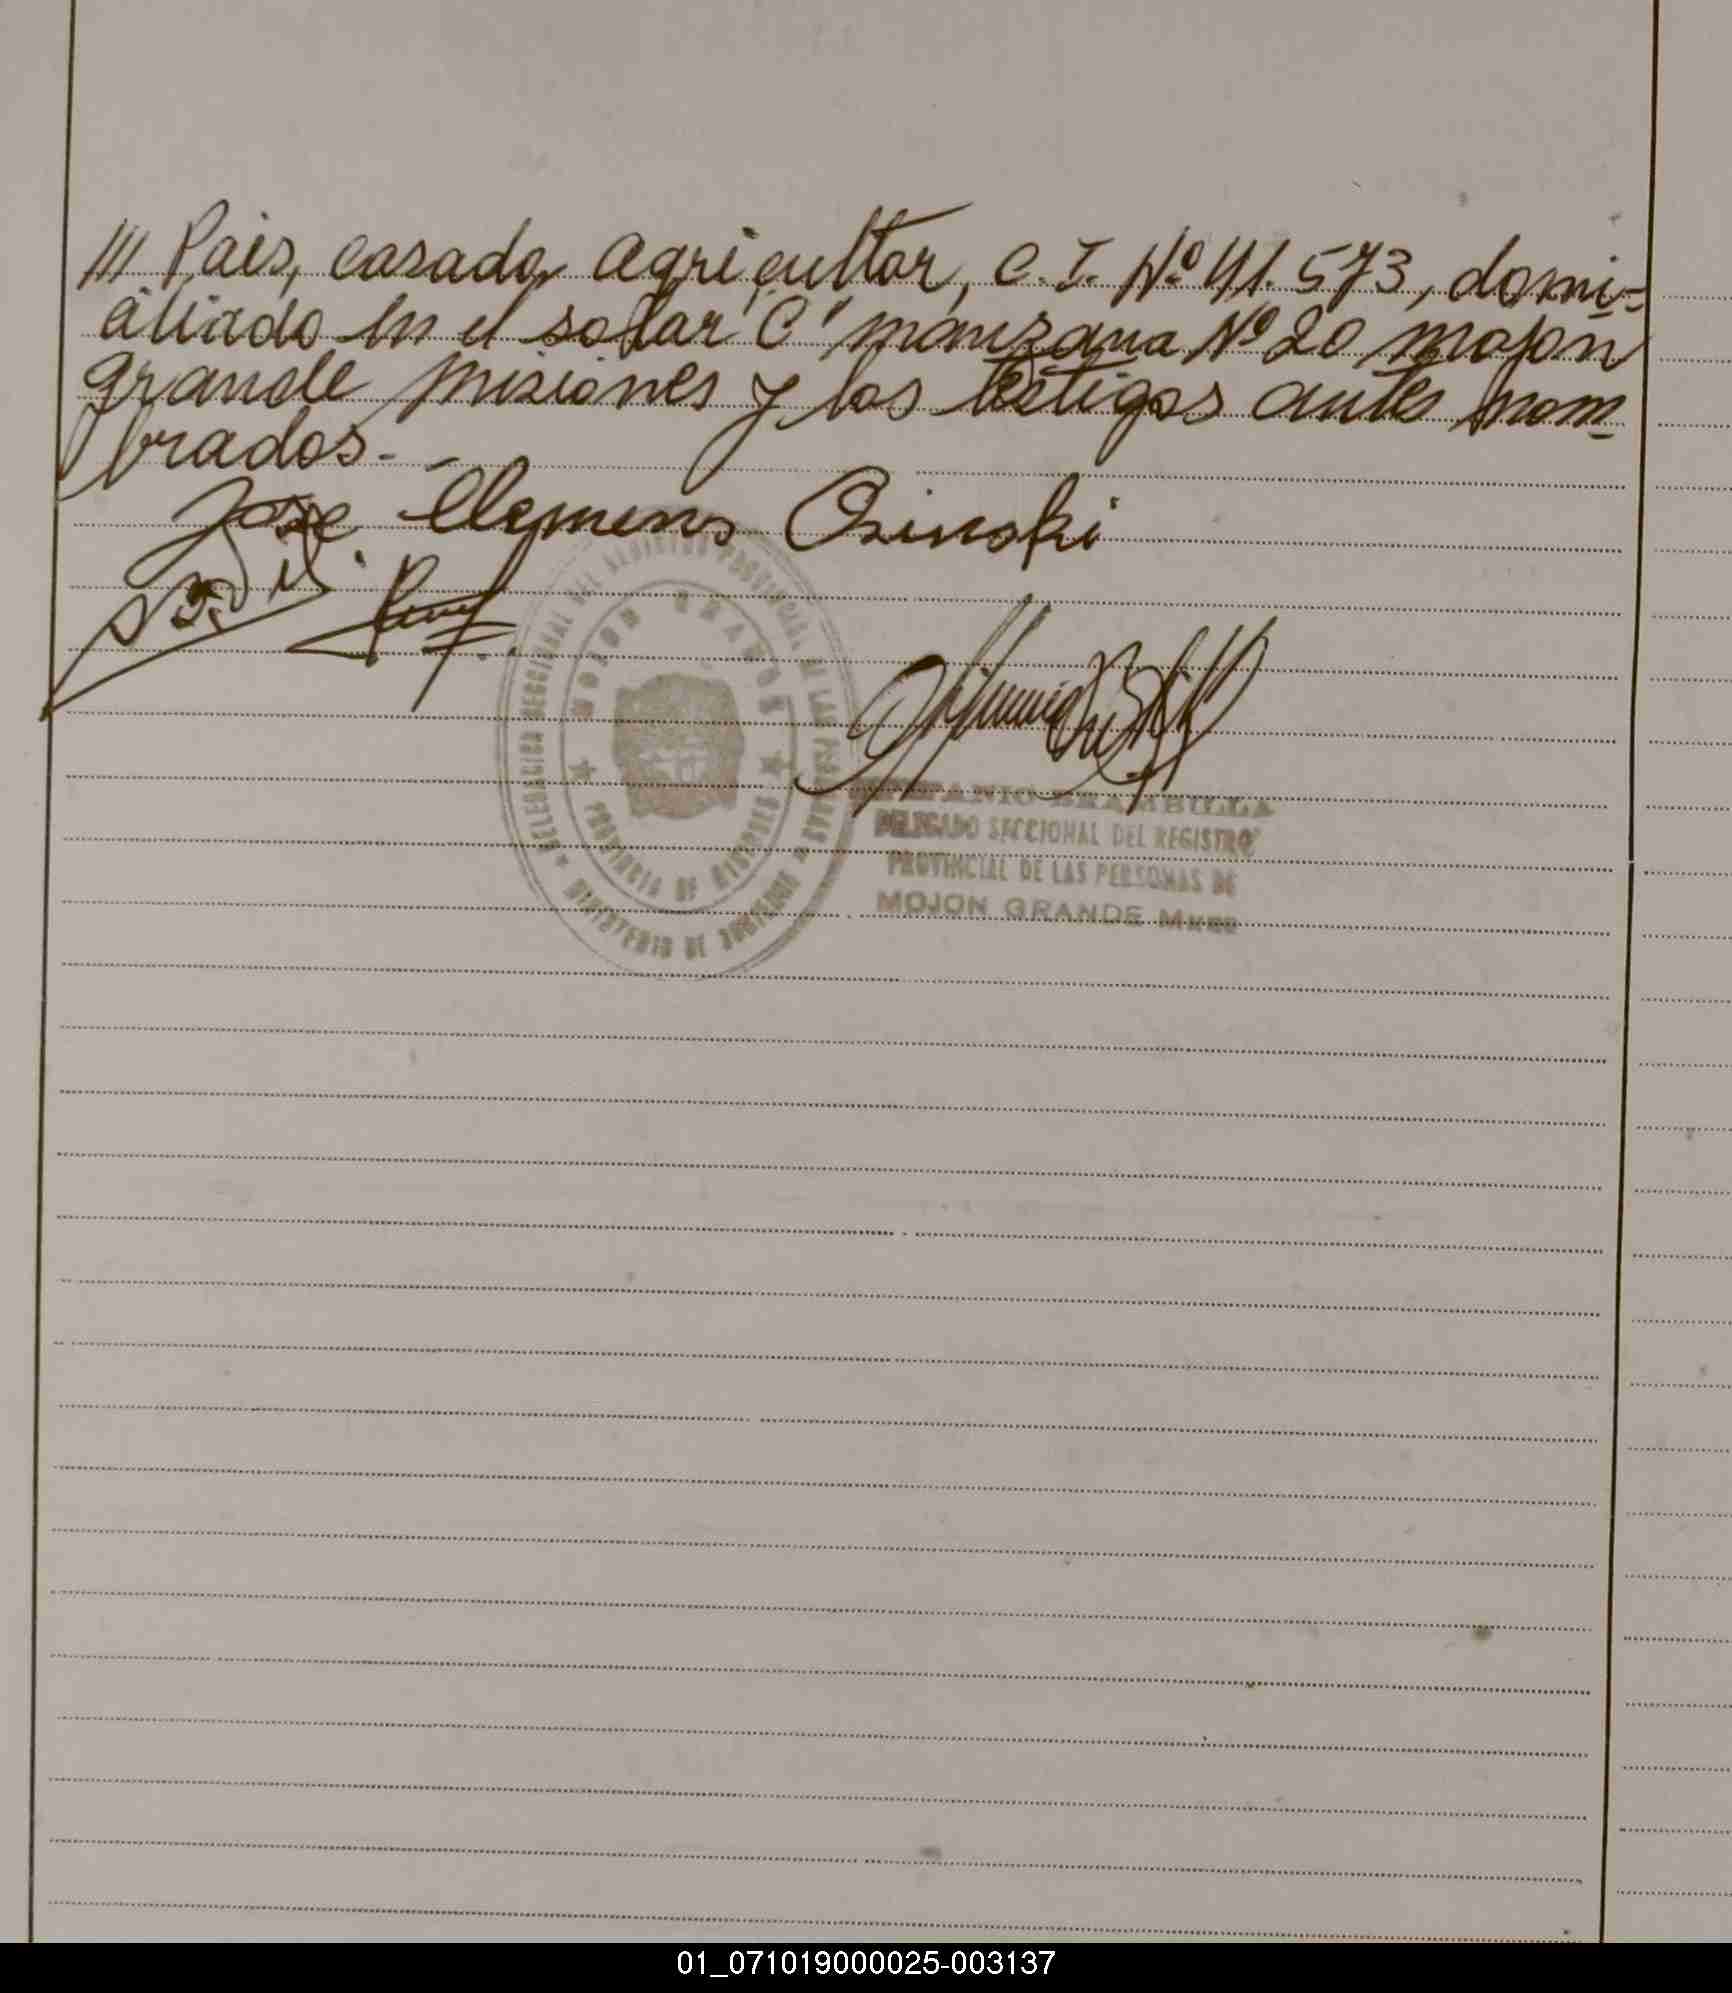 /// Pais, casado, agricultor, C.I. Nº 41.573, domi-
ciliado en el solar "C" manzana Nº 20 mojon
grande misiones y los testigos antes nom
brados. -
Jose Clemens Osinski
DELEGACION SECCIONAL DEL REGISTRO PROVINCIAL DE LAS PERSONAS
MOJON GRANDE
PROVINCIA DE MISIONES
MINISTERIO DE
BRAMBILLA
DELEGADO SECCIONAL DEL REGISTRO
PROVINCIAL DE LAS PERSONAS DE
MOJON GRANDE Mnes
01_071019000025-003137